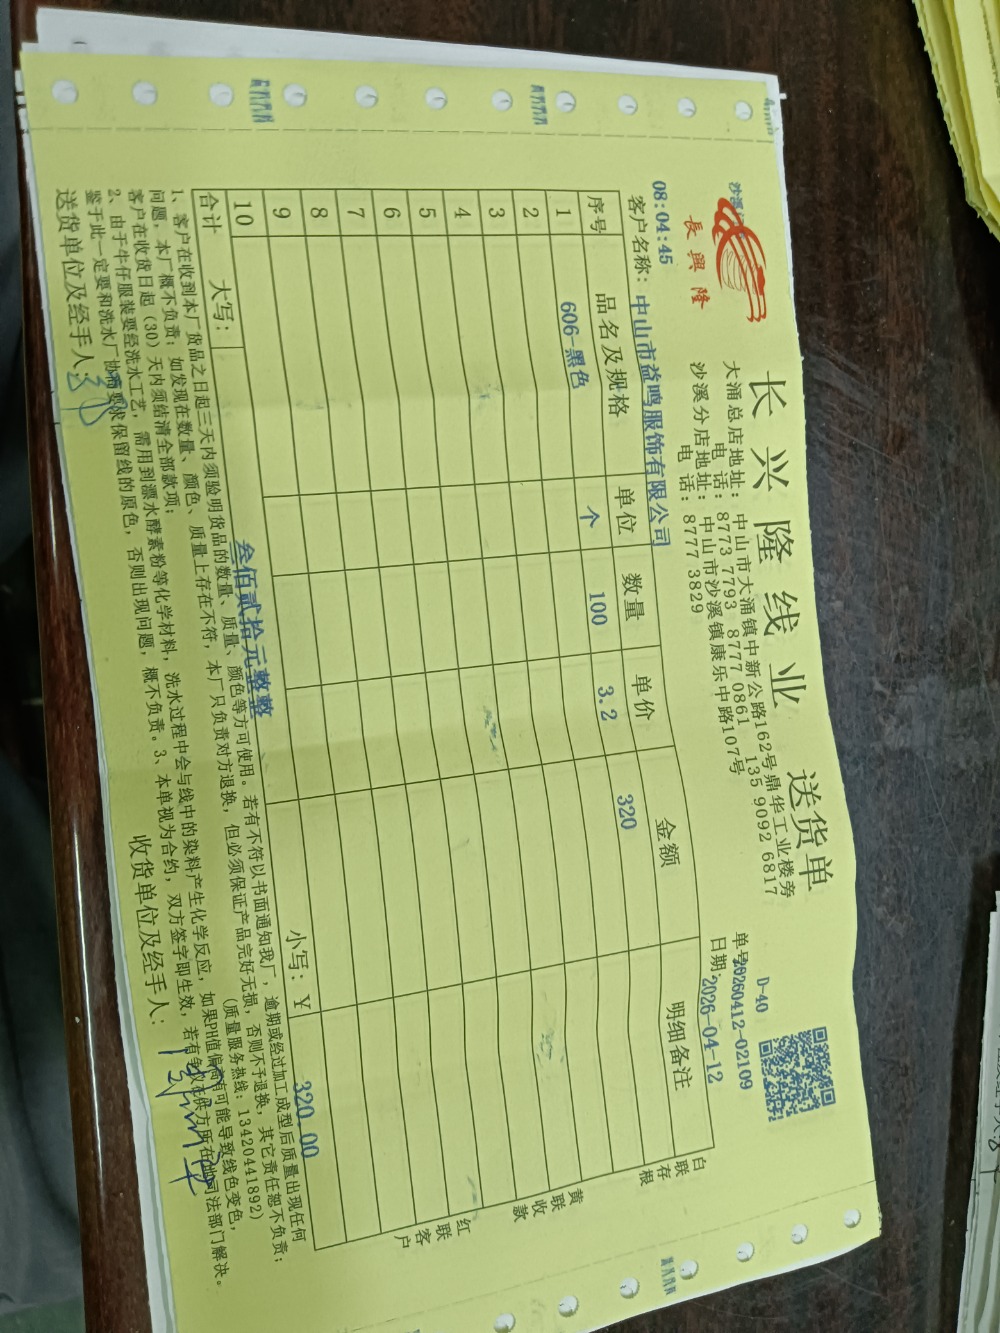 長興隆
长兴隆线业 送货单
大涌总店地址：中山市大涌镇中新公路162号鼎华工业楼旁
电话：8773 7793 8777 0861 135 9092 6817
沙溪分店地址：中山市沙溪镇康乐中路107号
电话：8777 3829
D-40
单号20260412-02109
日期：2026-04-12
08:04:45
客户名称：中山市益鸣服饰有限公司
序号 品名及规格 单位 数量 单价 金额 明细备注
1 606-黑色 个 100 3.2 320
2
3
4
5
6
7
8
9
10
合计 大写：叁佰贰拾元整整 小写：Y 320.00
白联存根
黄联收款
红联客户
1、客户在收到本厂货品之日起三天内须验明货品的数量、质量、颜色等方可使用。若有不符以书面通知我厂，逾期或经过加工成型后质量出现任何
问题，本厂概不负责；如发现在数量、颜色、质量上存在不符，本厂只负责对方退换，但必须保证产品完好无损，否则不予退换，其它责任恕不负责；
客户在收货日起（30）天内须结清全部款项；
（质量服务热线：13420441892）
2、由于牛仔服装要经洗水工艺，需用到漂水酵素粉等化学材料，洗水过程中会与线中的染料产生化学反应，如果PH值偏高有可能导致线色变色，
鉴于此一定要和洗水厂协商要求保留线的原色，否则出现问题，概不负责。3、本单视为合约，双方签字即生效，若有争议在供方所在地司法部门解决。
送货单位及经手人：
收货单位及经手人：